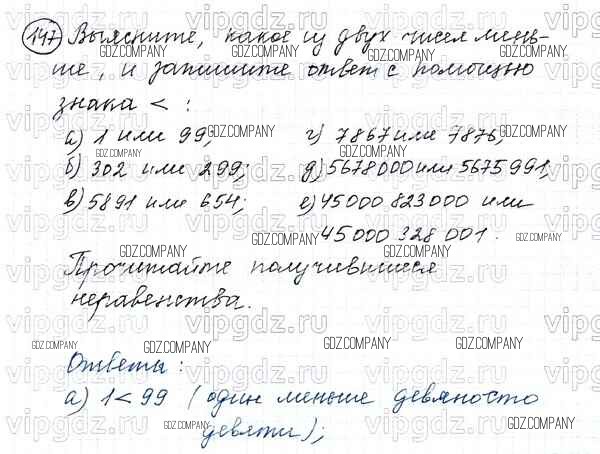 147 Выясните, какое из двух чисел мень-
ше, и запишите ответ с помощью
знака < :
а) 1 или 99; г) 7867 или 7876;
б) 302 или 299; д) 5678000 или 5675991;
в) 5891 или 654; е) 45000 823000 или
45000 328 001.
Прочитайте получившиеся
неравенства.
Ответы :
а) 1 < 99 (один меньше девяносто
девяти);